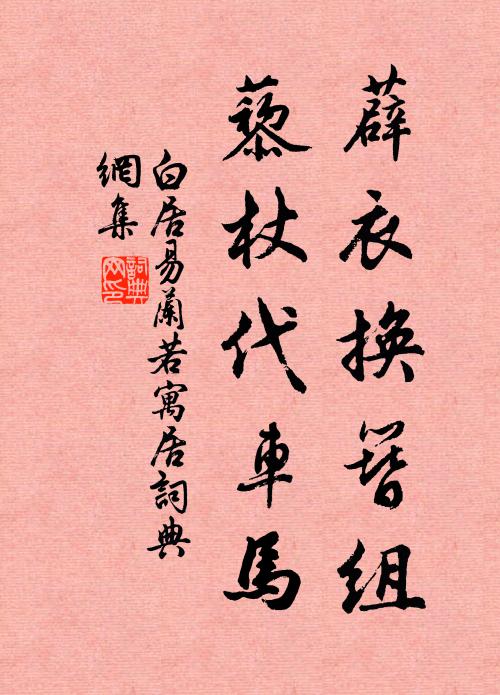 薜衣換簪組
藜杖代車馬
白居易蘭若寓居詞典
網集
詞典
网印